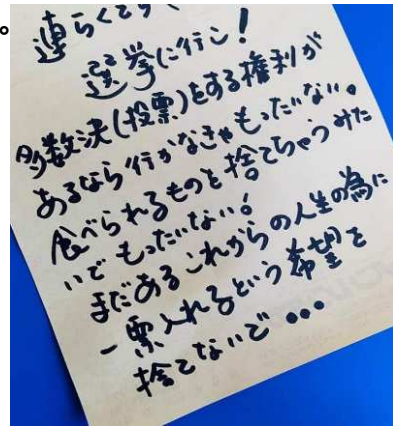 連らくです
選挙に行こ!
多数決(投票)をする権利が
あるなら行かなきゃもったいない。
食べられるものを捨てちゃうみた
いでもったいない。
まだあるこれからの人生の為に
一票入れるという希望を
捨てないで•••